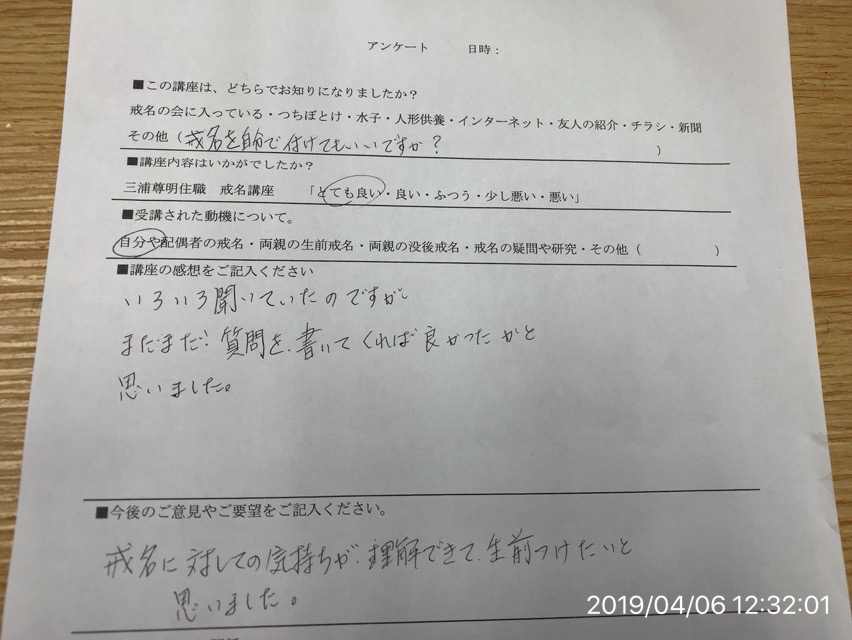 アンケート 日時：
■この講座は、どちらでお知りになりましたか？
戒名の会に入っている・つちぼとけ・水子・人形供養・インターネット・友人の紹介・チラシ・新聞
その他（戒名を自分で付けてもいいですか？ ）
■講座内容はいかがでしたか？
三浦尊明住職 戒名講座 「とても良い・良い・ふつう・少し悪い・悪い」
■受講された動機について。
自分や配偶者の戒名・両親の生前戒名・両親の没後戒名・戒名の疑問や研究・その他（ ）
■講座の感想をご記入ください
いろいろ聞いていたのですが、
まだまだ！質問を、書いてくれば良かったかと
思いました。
■今後のご意見やご要望をご記入ください。
戒名に対しての気持ちが、理解できて、生前つけたいと
思いました。
2019/04/06 12:32:01